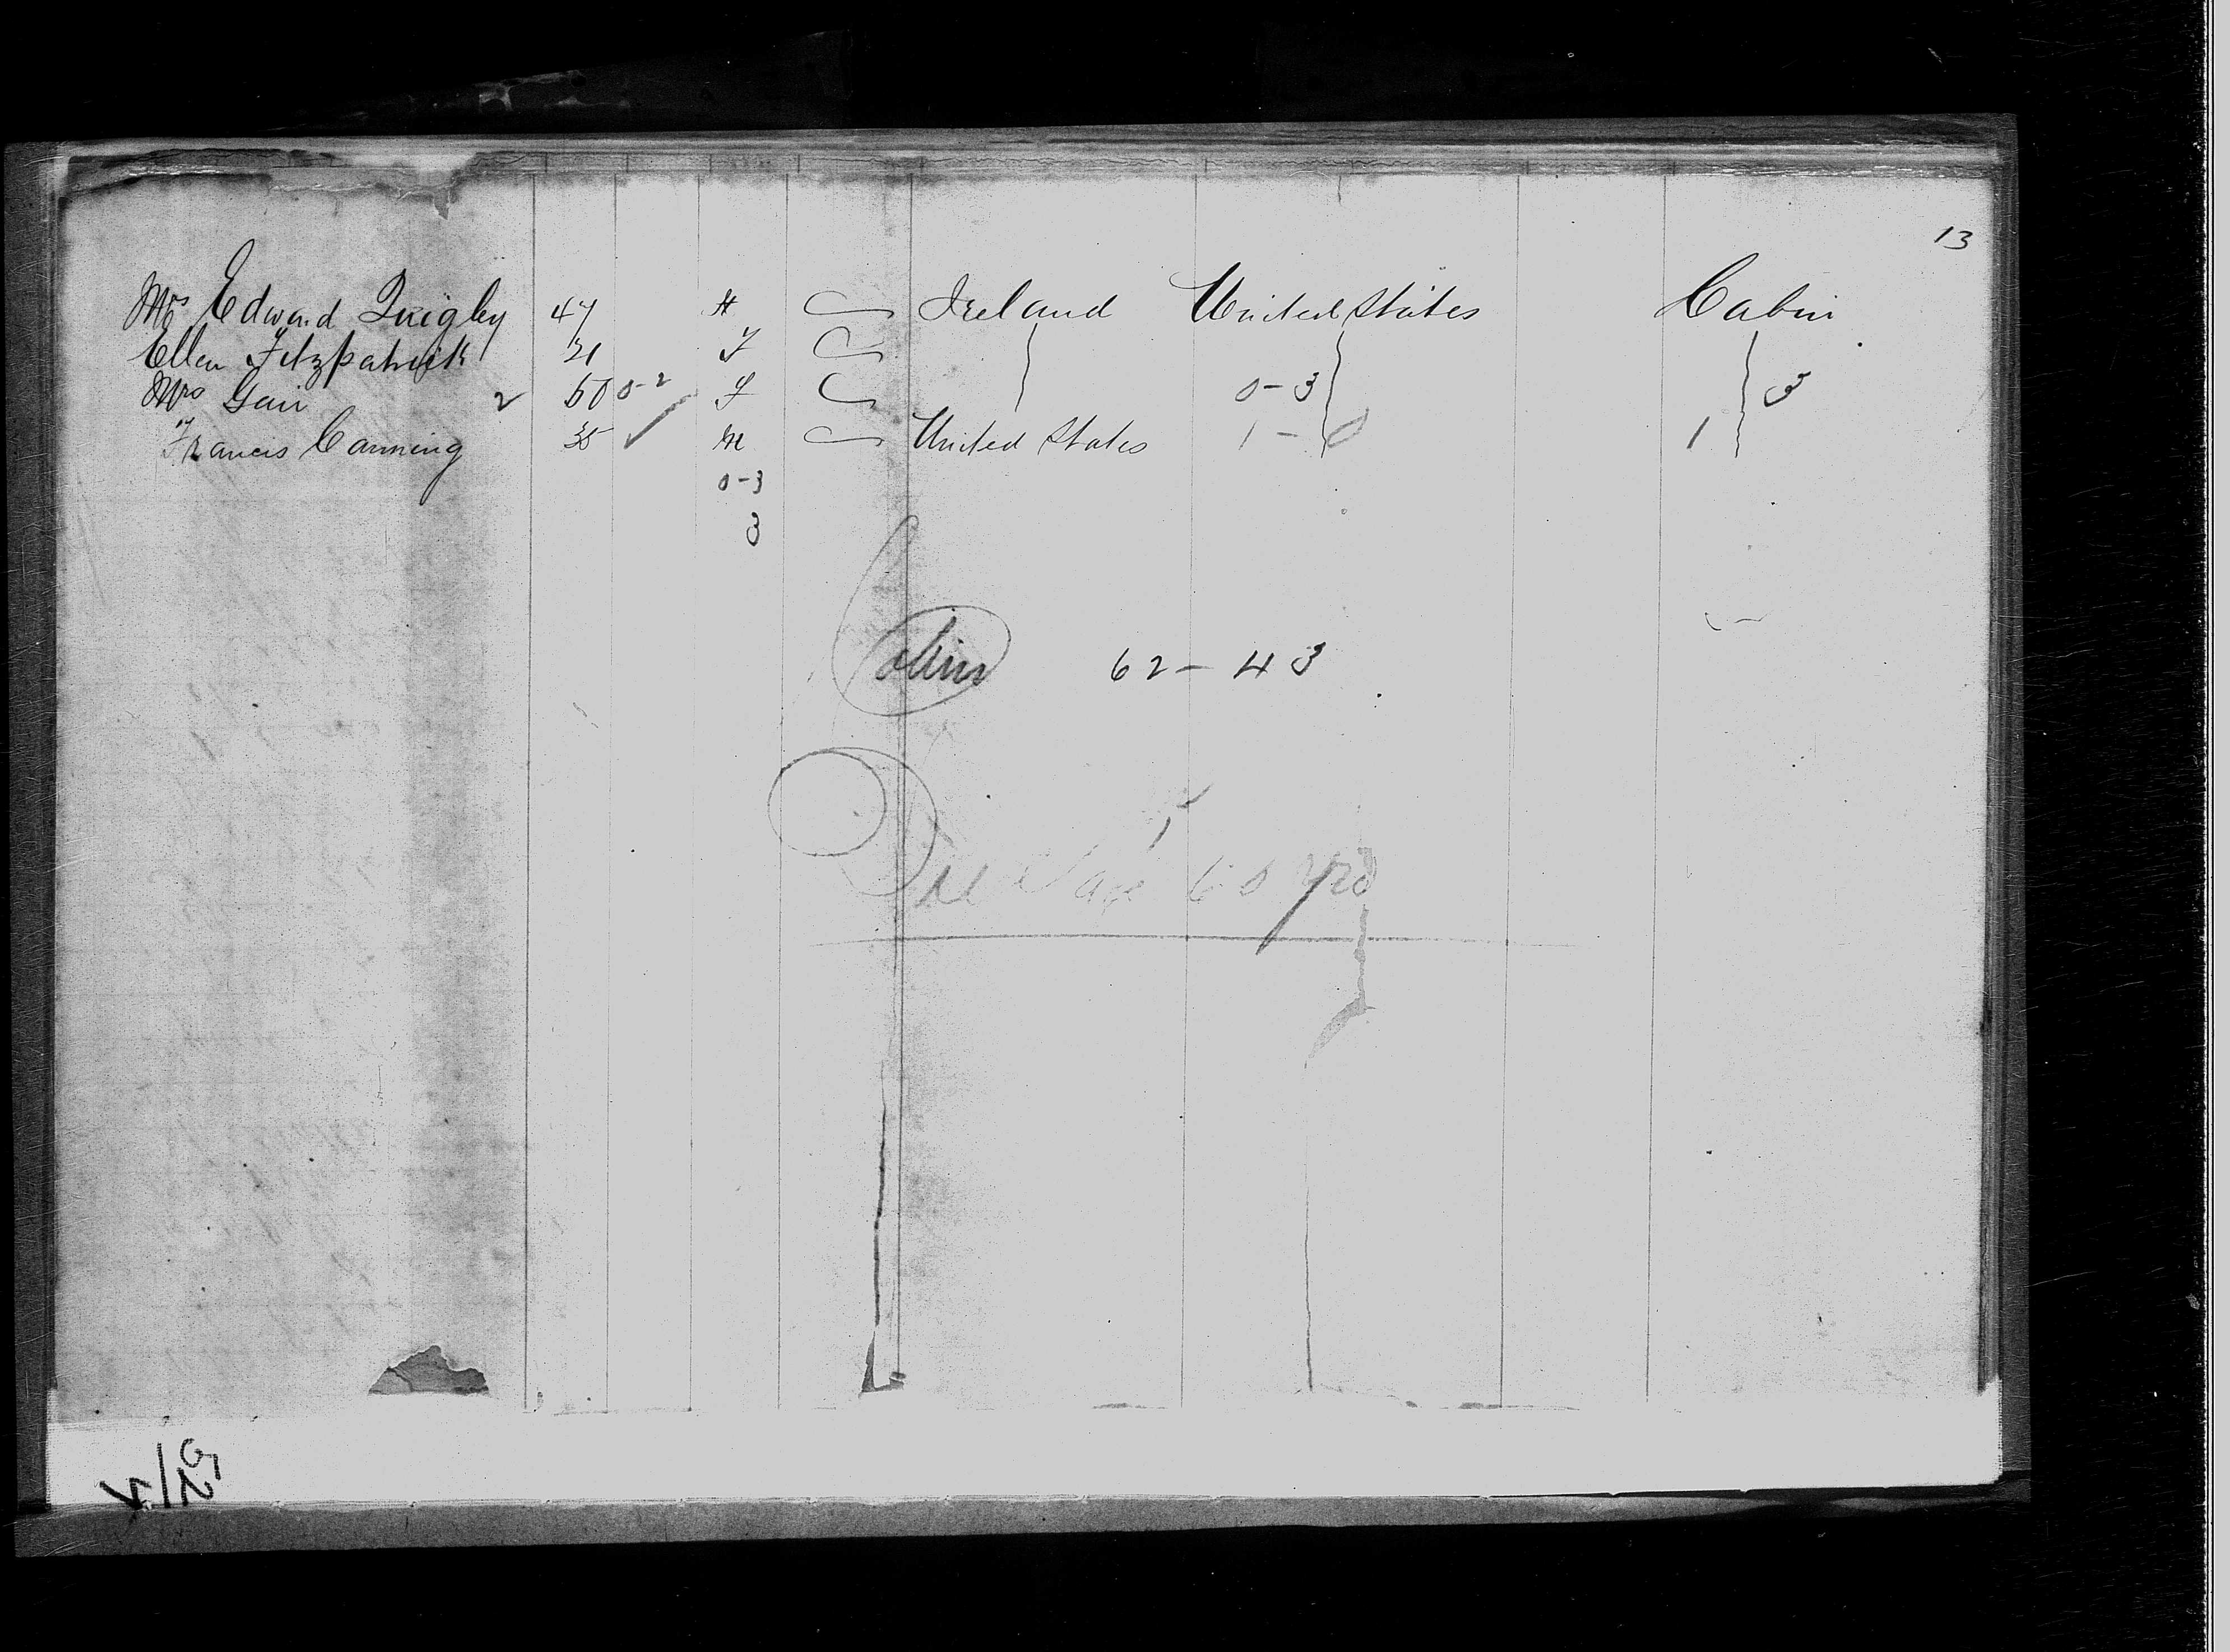 13
Mrs Edward Quigley 47 Ireland United States Cabin
Ellen Fitzpatrick 21 F
Mrs Gair 2 60 0-2 F 0-3 3
Francis Canning 35 M United States 1-0 1
0-3
3
Cabin 62-43
Died age 60 yrs